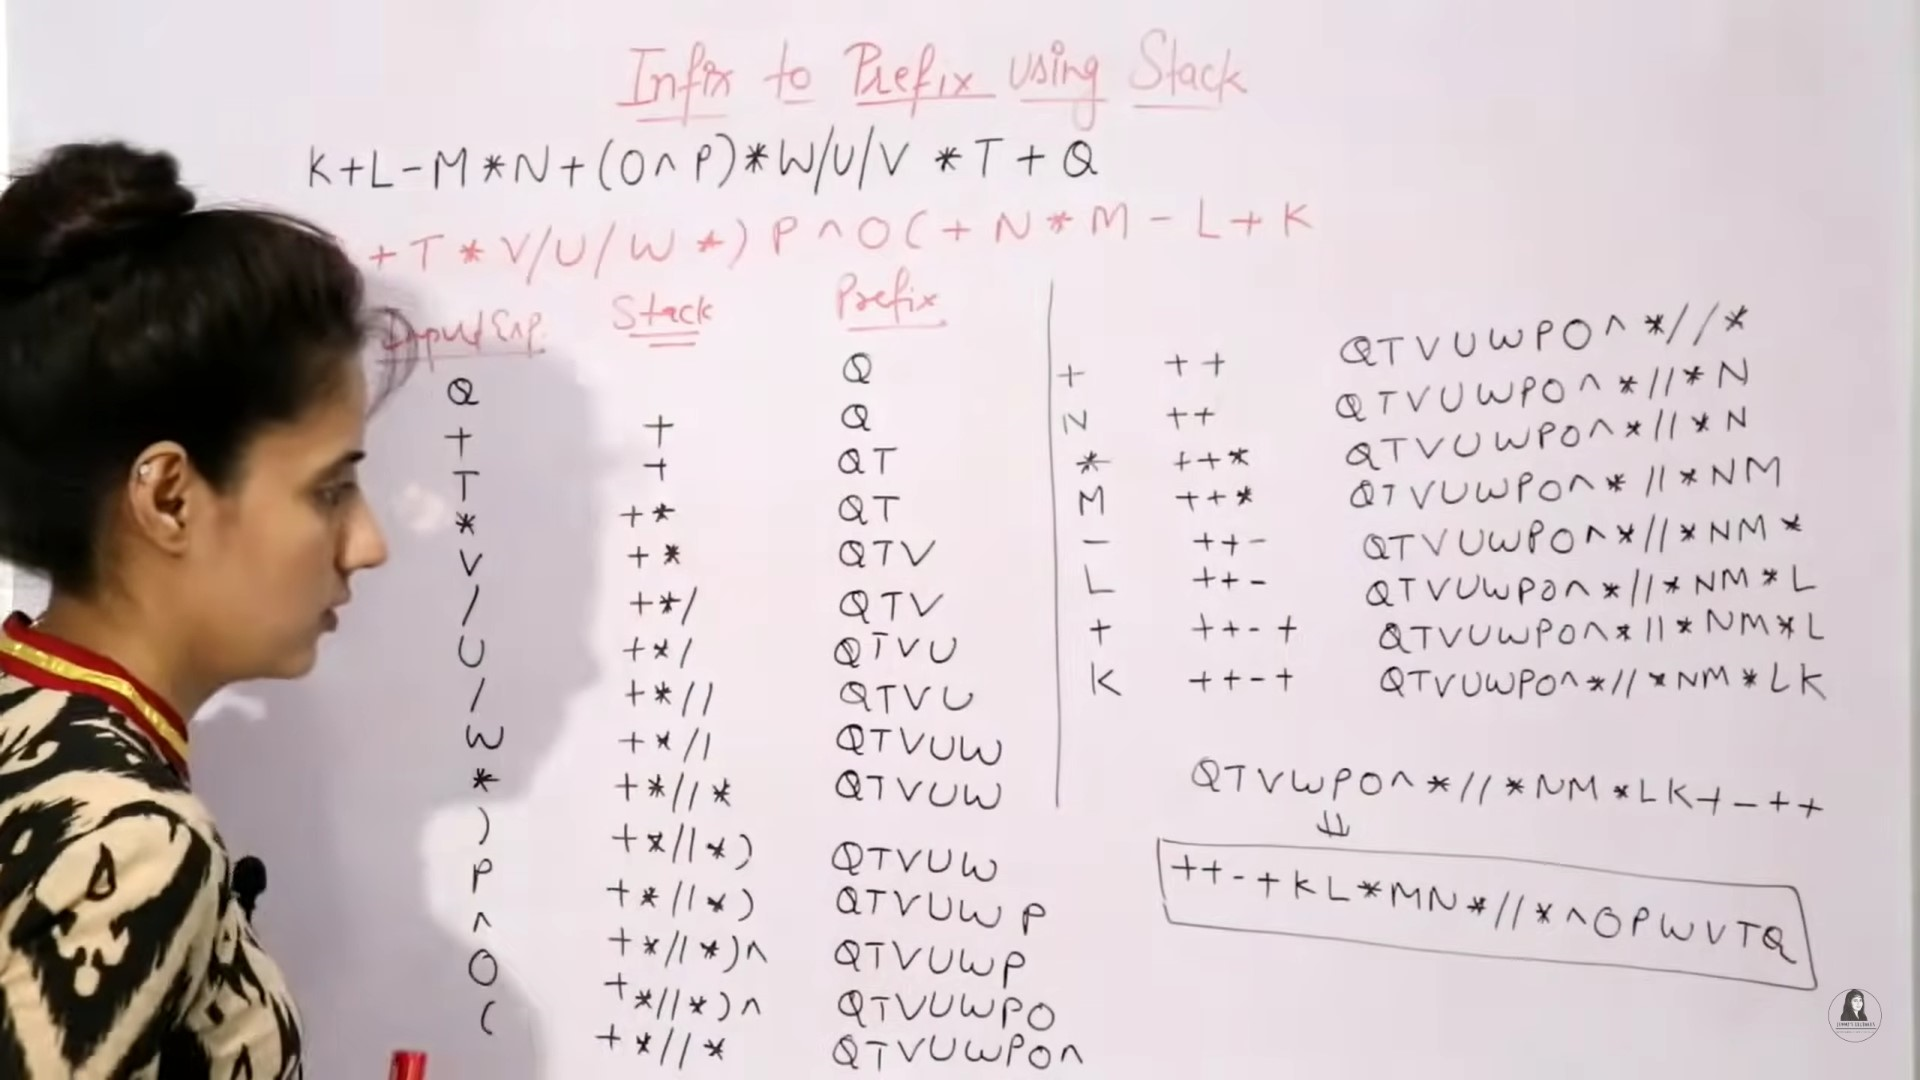 Infix to Prefix using Stack
K+L-M*N+(O^P)*W/U/V *T+Q
+T*V/U/W*)P^O(+N*M-L+K
Input Exp. Stack Prefix
Q Q
+ + Q
T + QT
* +* QT
V +* QTV
/ +*/ QTV
U +*/ QTVU
/ +*// QTVU
W +*// QTVUW
* +*//* QTVUW
) +*//*) QTVUW
P +*//*) QTVUWP
^ +*//*)^ QTVUWP
O +*//*)^ QTVUWPO
( +*//* QTVUWPO^
+ ++ QTVUWPO^*//*
N ++ QTVUWPO^*//*N
* ++* QTVUWPO^*//*N
M ++* QTVUWPO^*//*NM
- ++- QTVUWPO^*//*NM*
L ++- QTVUWPO^*//*NM*L
+ ++-+ QTVUWPO^*//*NM*L
K ++-+ QTVUWPO^*//*NM*LK
QTVWPO^*//*NM*LK+-++
⇓
++-+KL*MN*//*^OPWVTQ